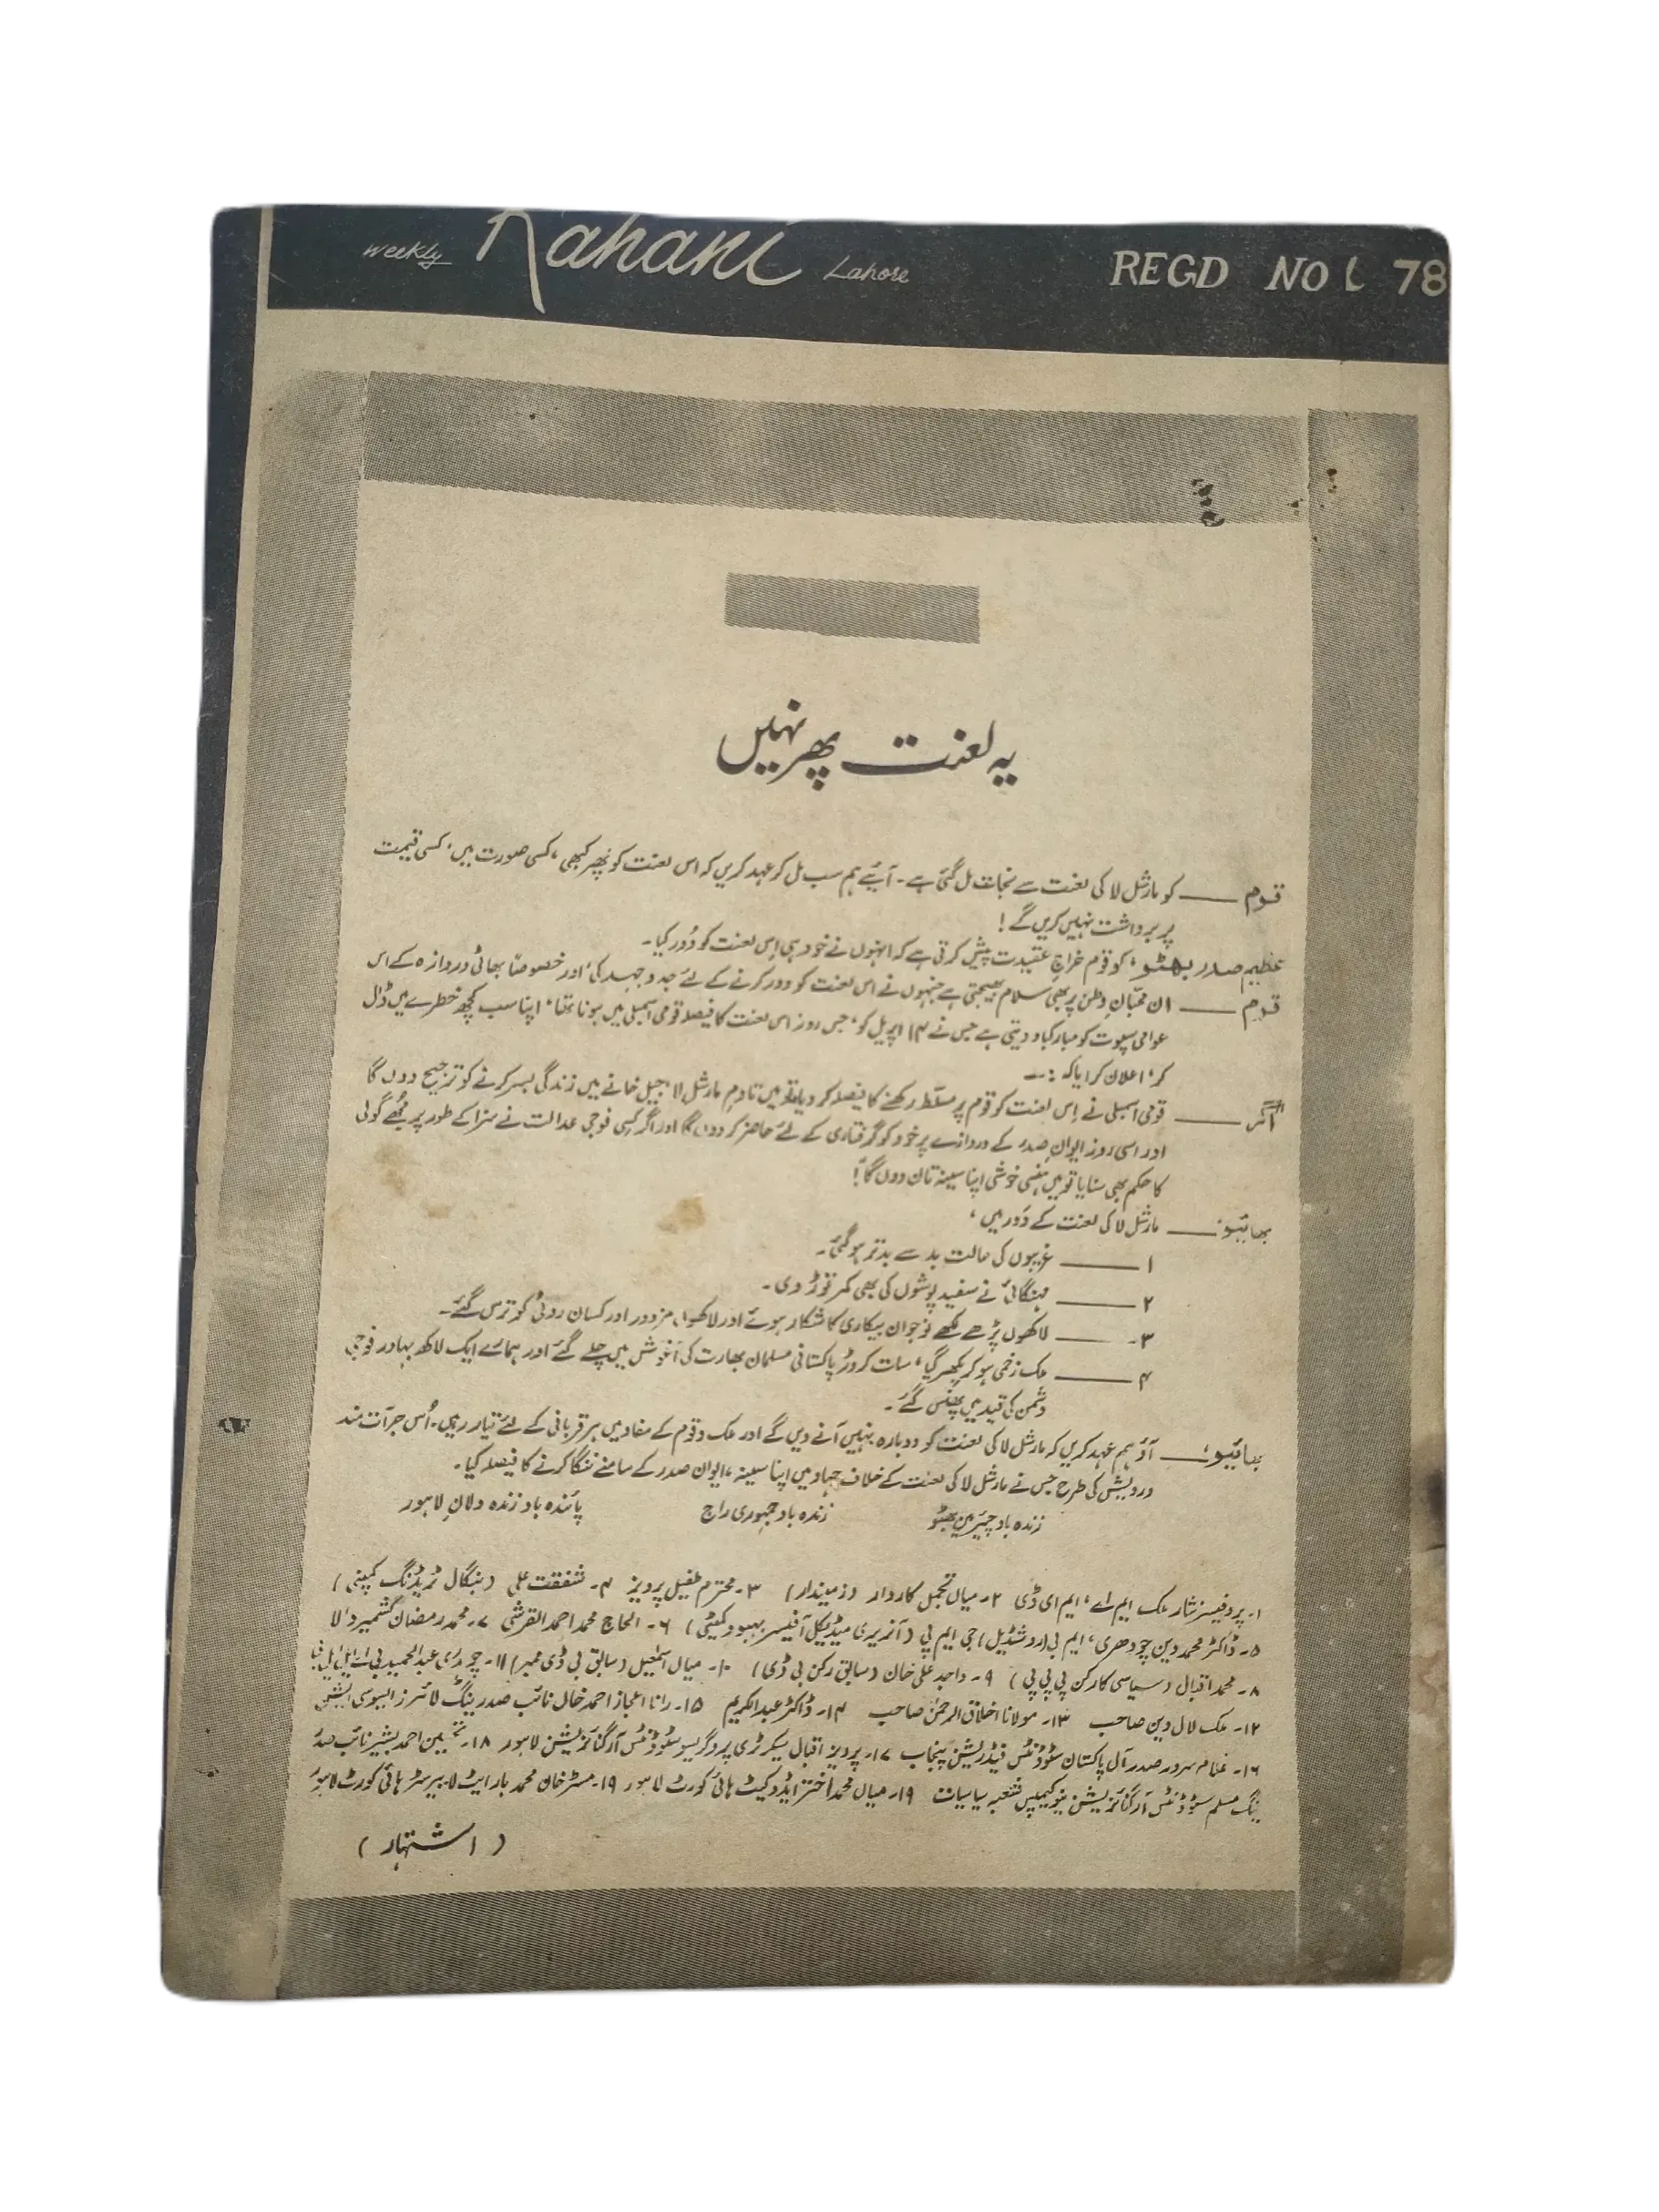 Weekly Kahani Lahore REGD NO L 78
یہ لعنت پھر نہیں
قوم ــــ کو مارشل لا کی لعنت سے نجات مل گئی ہے۔ آئیے ہم سب مل کر عہد کریں کہ اس لعنت کو پھر کبھی، کسی صورت میں، کسی قیمت
پر برداشت نہیں کریں گے!
عظیم صدر بھٹو، کو قوم خراجِ عقیدت پیش کرتی ہے کہ انہوں نے خود ہی اِس لعنت کو دُور کیا۔
قوم ــــ ان محبّانِ وطن پر بھی سلام بھیجتی ہے جنہوں نے اس لعنت کو دور کرنے کے لئے جدوجہد کی، اور خصوصاً بھاٹی دروازہ کے اس
عوامی سپوت کو مبارکباد دیتی ہے جس نے ۱۴ اپریل کو، جس روز اس لعنت کا فیصلہ قومی اسمبلی میں ہونا تھا، اپنا سب کچھ خطرے میں ڈال
کر، اعلان کرایا کہ :—
"اگر ــــ قومی اسمبلی نے اِس لعنت کو قوم پر مسلّط رکھنے کا فیصلہ کر دیا تو میں تادمِ مارشل لا، جیل خانے میں زندگی بسر کرنے کو ترجیح دوں گا
اور اسی روز ایوانِ صدر کے دروازے پر خود کو گرفتاری کے لئے حاضر کر دوں گا اور اگر کسی فوجی عدالت نے سزا کے طور پر مجھے گولی
کا حکم بھی سنایا تو میں ہنسی خوشی اپنا سینہ تان دوں گا"!
بھائیو! ــــ مارشل لا کی لعنت کے دَور میں،
۱ ــــ غریبوں کی حالت بد سے بدتر ہو گئی۔
۲ ــــ مہنگائی نے سفید پوشوں کی بھی کمر توڑ دی۔
۳ ــــ لاکھوں پڑھے لکھے نوجوان بیکاری کا شکار ہوئے اور لاکھوں مزدور اور کسان روٹی کو ترس گئے۔
۴ ــــ ملک زخمی ہو کر بکھر گیا، سات کروڑ پاکستانی مسلمان بھارت کی آغوش میں چلے گئے اور ہمارے ایک لاکھ بہادر فوجی
دشمن کی قید میں پھنس گئے۔
بھائیو! ــــ آؤ ہم عہد کریں کہ مارشل لا کی لعنت کو دوبارہ نہیں آنے دیں گے اور ملک و قوم کے مفاد میں ہر قربانی کے لئے تیار رہیں۔ اُس جرأت مند
درویش کی طرح جس نے مارشل لا کی لعنت کے خلاف جہاد میں اپنا سینہ، ایوانِ صدر کے سامنے ننگا کرنے کا فیصلہ کیا۔
زندہ باد چیئرمین بھٹو زندہ باد جمہوری راج پائندہ باد زندہ دلانِ لاہور
۱۔ پروفیسر نثار ملک ایم اے، ایم ای ڈی ۲۔ میاں تجمل کاردار (زمیندار) ۳۔ محترم طفیل پرویز ۴۔ شفقت علی (بنگال ٹریڈنگ کمپنی)
۵۔ ڈاکٹر محمد دین چودھری، ایم بی (روشڈیل) جی ایم پی (آنریری میڈیکل آفیسر بہبود کمیٹی) ۶۔ الحاج محمد احمد القرشی ۷۔ محمد رمضان کشمیر والا
۸۔ محمد اقبال (سیاسی کارکن پی پی پی) ۹۔ واجد علی خان (سابق رکن بی ڈی) ۱۰۔ میاں اسمٰعیل (سابق بی ڈی ممبر) ۱۱۔ چوہدری عبدالحمید بی اے ایل ایل بی
۱۲۔ ملک لال دین صاحب ۱۳۔ مولانا اخلاق الرحمٰن صاحب ۱۴۔ ڈاکٹر عبدالکریم ۱۵۔ رانا اعجاز احمد خاں نائب صدر ینگ لائرز ایسوسی ایشن
۱۶۔ غلام سرور صدر آل پاکستان سٹوڈنٹس فیڈریشن پنجاب ۱۷۔ پرویز اقبال سیکرٹری پروگریسو سٹوڈنٹس آرگنائزیشن لاہور ۱۸۔ تحسین احمد بشیر نائب صدر
ینگ مسلم سٹوڈنٹس آرگنائزیشن نیو کیمپس شعبہ سیاسیات ۱۹۔ میاں محمد اختر ایڈووکیٹ ہائی کورٹ لاہور ۱۹۔ مسٹر خان محمد بار ایٹ لا۔ بیرسٹر ہائی کورٹ لاہور
(اشتہار)